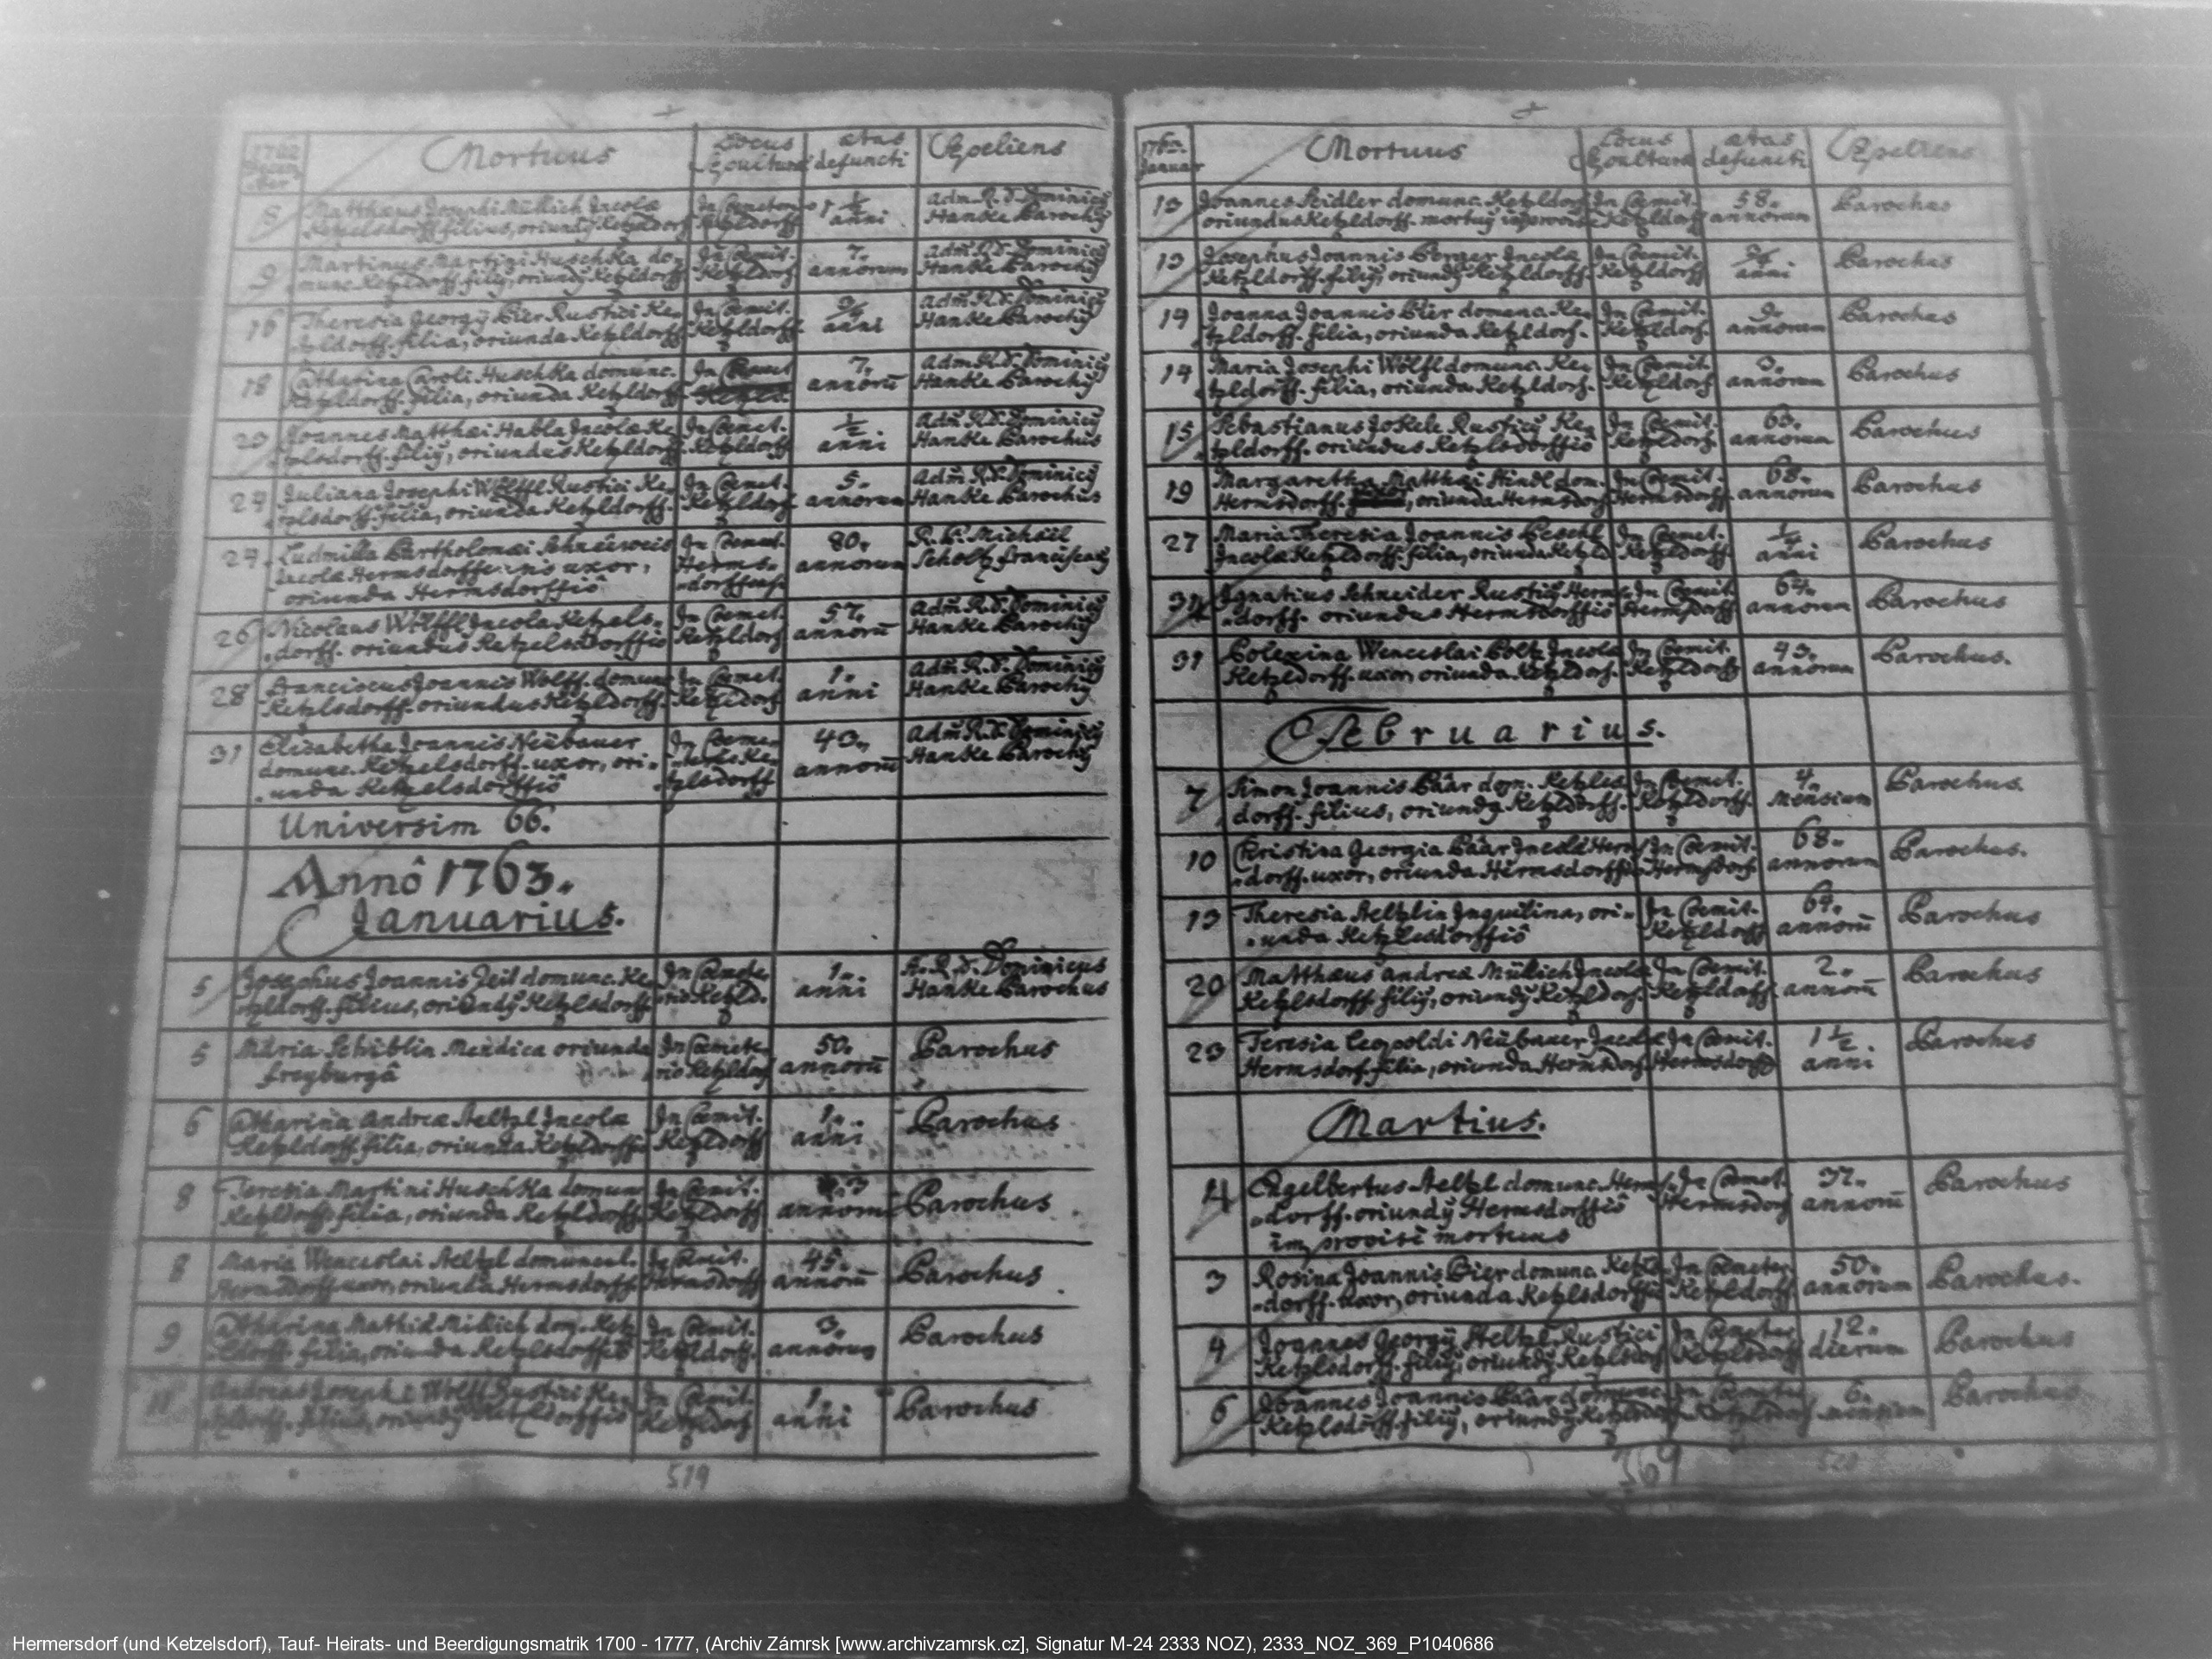 1762 Decem-
ber
Mortuus
Locus
Sepulturæ
ætas
defuncti
Sepeliens
8
Matthæus Josephi Millich Jncolæ
Ketzelsdorff filius, oriundy Ketzldorff
Jn Cœmeterio
Ketzldorff
1 1/2
anni
Adm. R. D. Dominicy
Hanke Parochy
9
Martinus Martini Huschka do-
munc. Ketzldorff. filiy, oriundy Ketzldorff
Jn Cœmit.
Ketzldorf
7.
annorum
Adm. R. D. Dominicy
Hanke Parochy
16
Theresia Georgy Bier Rustici Ke-
tzldorff. filia, oriunda Ketzldorff
Jn Cœmit.
Ketzldorff
3/4
anni
Adm. R. D. Dominicy
Hanke Parochy
18
Catharina Caroli Huschka domunc.
Ketzldorff. filia, oriunda Ketzldorff
Jn Cœmet
7.
annorū
Adm. R. D. Dominicy
Hanke Parochy
23
Joannes Matthæi Habla Jncolæ Ke-
tzlsdorff. filiy, oriundus Ketzldorff
Jn Cœmet.
Ketzldorff
1/2
anni
Adm. R. D. Dominicy
Hanke Parochus
24
Juliana Josephi Wölffl Rustici Ke-
tzlsdorff. filia, oriunda Ketzldorff.
Jn Cœmet.
Ketzldorf
5.
annorum
Adm. R. D. Dominicy
Hanke Parochus
24
Ludmilla Bartholomæi Schneeweis
Jncolæ Hermsdorffensis uxor,
oriunda Hermsdorffiô
Jn Cœmet.
Herms-
dorffensi
80.
annorum
R. P. Michaël
Scholtz Franciscany
26
Nicolaus Wölffl Jncola Ketzels-
dorff. oriundus Ketzelsdorffio
Jn Cœmet.
Ketzldorf
57.
annorū
Adm. R. D. Dominicy
Hanke Parochy
28
Franciscus Joannis Wolff. domunc.
Ketzlsdorff. oriundus Ketzldorff.
Jn Cœmet.
Ketzldorf
1.
anni
Adm. R. D. Dominicy
Hanke Parochy
31
Elisabetha Joannis Neübauer
domunc. Ketzelsdorff. uxor, ori-
unda Ketzelsdorffiô
Jn Cœme-
terio Ke-
tzlsdorff
43.
annorū
Adm. R. D. Dominicy
Hanke Parochy
Universim 66.
Annô 1763.
Januarius.
5
Josephus Joannis Zeil domunc. Ke-
tzldorff. filius, oriundy Ketzlsdorff
Jn Cœmete-
rio Ketzld.
1.
anni
A. R. D. Dominicus
Hanke Parochus
5
Maria Schiblin Mendica oriunda
Freyburgâ
Jn Cœmete-
rio Ketzldorf
50.
annorū
Parochus
6
Catharina Andreæ Aeltzl Jncolæ
Ketzldorff. filia, oriunda Ketzldorffio
Jn Cœmit.
Ketzldorff
1.
anni
Parochus
8
Teresia Martini Huschka domunc
Ketzldorff. filia, oriunda Ketzldorff.
Jn Cœmit.
Ketzldorff
3
annorū
Parochus
8
Maria Wenceslai Aeltzl domuncul.
Hermsdorff. uxor, oriunda Hermsdorff.
Jn Cœmit.
Hermsdorff
45.
annorū
Parochus
9
Catharina Mathiæ Millich dom. Ketz-
ldorff. filia, oriunda Ketzlsdorffio
Jn Cœmit.
Ketzldorff.
3.
annorum
Parochus
11
Andreas Josephi Wölffl Rustici Ke-
tzldorff. filius, oriundy Ketzldorffiô
Jn Cœmit.
Ketzldorf
1.
anni
Parochus
519
1763.
Januar
Mortuus
Locus
Sepulturæ
ætas
defuncti
Sepeliens
13
Joannes Seidler domunc. Ketzldorf
oriundus Ketzldorff. mortuy improvise
Jn Cœmit.
Ketzldorf
58.
annorum
Parochus
13
Josephus Joannis Berger Jncolæ
Ketzldorff. filiy, oriundy Ketzldorff.
Jn Cœmit.
Ketzldorff
3/4
anni
Parochus
14
Joanna Joannis Bier domunc. Ke-
tzldorff. filia, oriunda Ketzldorf.
Jn Cœmit.
Ketzldorf
9.
annorum
Parochus
14
Maria Josephi Wölffl domunc. Ke-
tzldorff. filia, oriunda Ketzldorf.
Jn Cœmit.
Ketzldorf
3.
annorum
Parochus
15
Sebastianus Jokele Rusticy Ke-
tzldorff. oriundus Ketzlsdorffiô
Jn Cœmit.
Ketzldorf
63.
annorum
Parochus
19
Margaretha Matthæi Hindl dom.
Hermsdorff. , oriunda Hermsdorf
Jn Cœmit.
Hermsdorff.
68.
annorum
Parochus
27
Maria Theresia Joannis Peschl
Jncolæ Ketzldorff. filia, oriunda Ketzld
Jn Cœmet.
Ketzldorff
1/4
anni
Parochus
31
Ignatius Schneider Rusticy Herms-
dorff. oriundus Hermsdorffiô
Jn Cœmit.
Hermsdorff
64.
annorum
Parochus
31
Polexina Wenceslai Poltz Jncolæ
Ketzldorff. uxor, oriunda Ketzldorf.
Jn Cœmit.
Ketzldorf
43.
annorum
Parochus.
Februarius.
7
Simon Joannis Bäar dom. Ketzles-
dorff. filius, oriundy Ketzldorff.
Jn Cœmet.
Ketzldorff.
4.
Mensium
Parochus.
10
Christina Georgia Bäar Jncolæ Herms-
dorff. uxor, oriunda Hermsdorffio
Jn Cœmit.
Hermsdorf
68.
annorum
Parochus.
13
Theresia Aeltzlin Jnquilina, ori-
unda Ketzlesdorffiô
Jn Cœmit.
Ketzldorff
64.
annorū
Parochus
20
Matthæus Andreæ Millich Jncolæ
Ketzlsdorff. filiy, oriundy Ketzldorf.
Jn Cœmit.
Ketzldorff.
2.
annorū
Parochus
23
Teresia Leopoldi Neübauer Jncolæ
Hermsdorf. filia, oriunda Hermsdorf
Jn Cœmit.
Hermsdorff
1 1/2.
anni
Parochus
Martius.
4
Engelbertus Aeltzl domunc. Herms-
dorff. oriundy Hermsdorffiô
improvisè mortuus
Jn Cœmet.
Hermsdorf
37.
annorū
Parochus
3
Rosina Joannis Bier domunc. Ketzls-
dorff. uxor, oriunda Ketzlsdorffio
Jn Cœmeter.
Ketzldorff.
50.
annorum
Parochus.
4
Joannes Georgy Aeltzl Rustici
Ketzlsdorff. filiy, oriundy Ketzlsdorf
Jn Cœmeter.
Ketzlsdorff
12.
dierum
Parochus
6
Joannes Joannis Bäar domunc.
Ketzlsdorff. filiy, oriundy Ketzlsdorf
6.
mensium
Parochus
369
520
Hermersdorf (und Ketzelsdorf), Tauf- Heirats- und Beerdigungsmatrik 1700 - 1777, (Archiv Zámrsk [www.archivzamrsk.cz], Signatur M-24 2333 NOZ), 2333_NOZ_369_P1040686